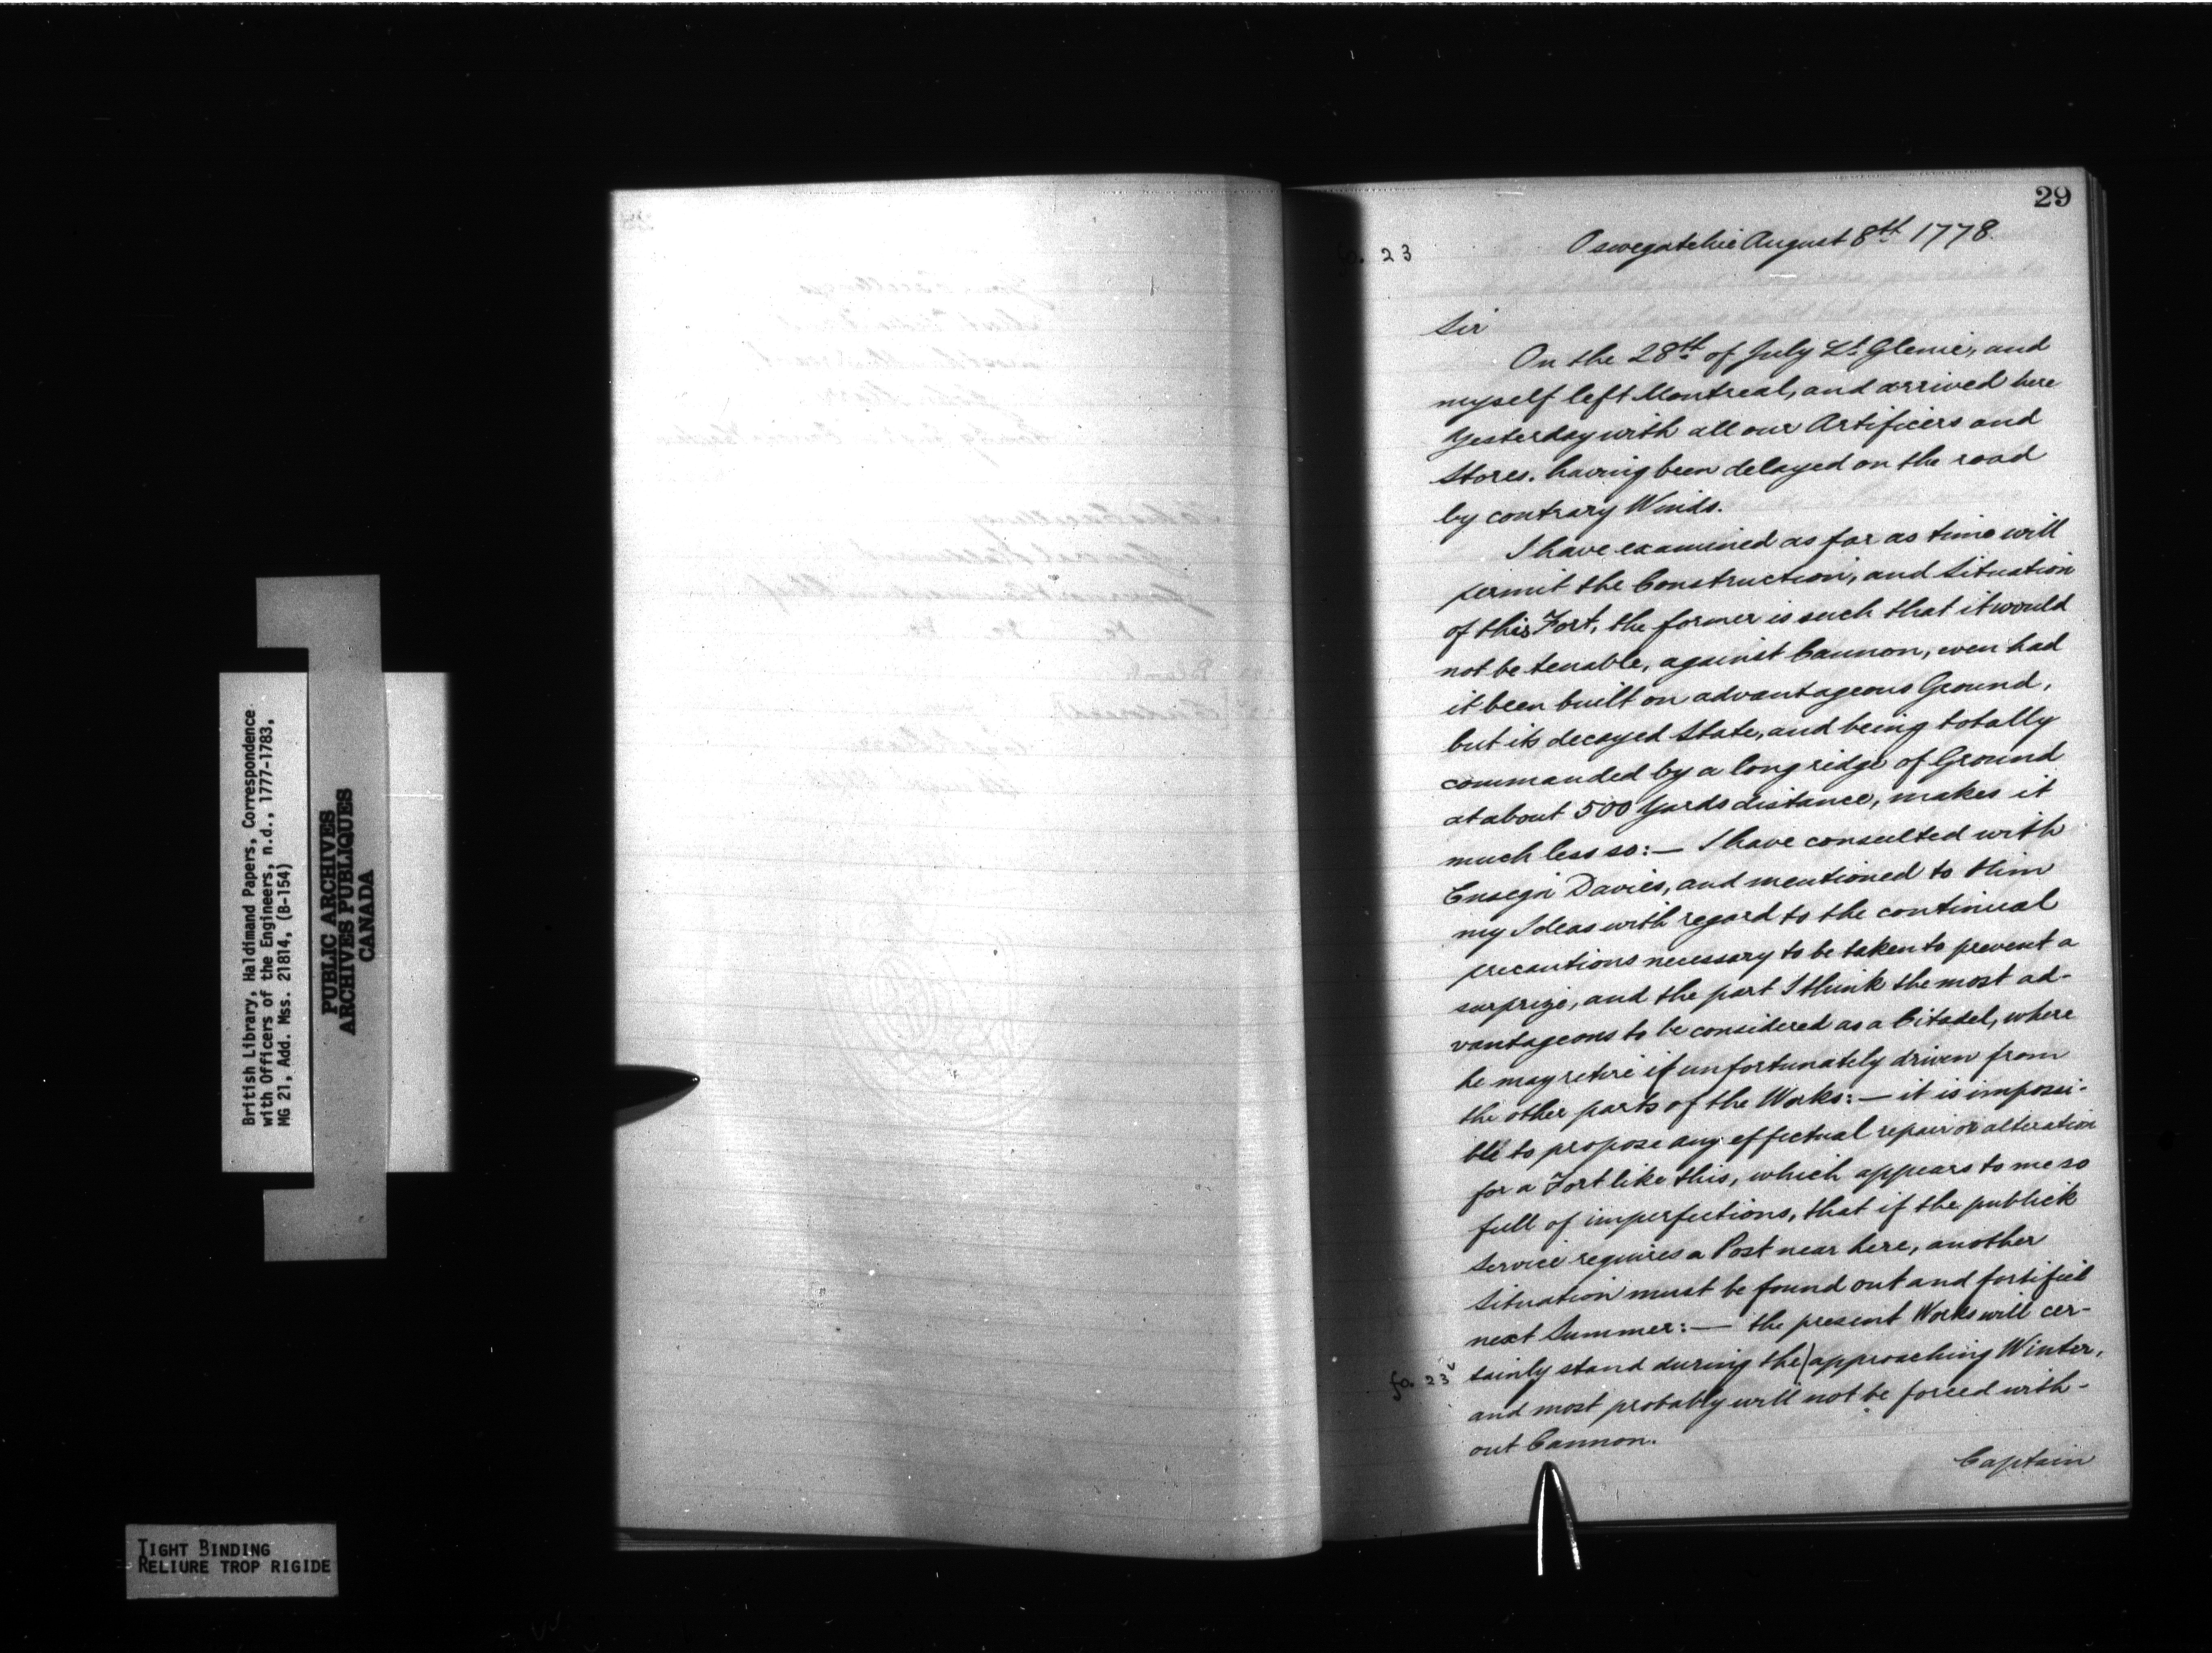 British Library, Haldimand Papers, Correspondence
with Officers of the Engineers, n.d., 1777-1783,
MG 21, Add. Mss. 21814, (B-154)
PUBLIC ARCHIVES
ARCHIVES PUBLIQUES
CANADA
TIGHT BINDING
RELIURE TROP RIGIDE
29
fo. 23
Oswegatchie August 8th 1778.
Sir
On the 28th of July Lt. Glenie, and
myself left Montreal, and arrived here
Yesterday with all our Artificers and
Stores. having been delayed on the road
by contrary Winds.
I have examined as far as time will
permit the Construction, and Situation
of this Fort, the former is such that it would
not be tenable, against Cannon, even had
it been built on advantageous Ground,
but its decayed State, and being totally
commanded by a long ridge of Ground
at about 500 Yards distance, makes it
much less so:— I have consulted with
Ensign Davies, and mentioned to Him
my Ideas with regard to the continual
precautions necessary to be taken to prevent a
surprize, and the part I think the most ad-
vantageous to be considered as a Citadel, where
he may retire if unfortunately driven from
the other parts of the Works:— it is impossi-
ble to propose any effectual repair or alteration
for a Fort like this, which appears to me so
full of imperfections, that if the publick
Service requires a Post near here, another
Situation must be found out and fortified
next Summer:— the present Works will cer-
fo. 23v tainly stand during the | approaching Winter,
and most probably will not be forced with-
out Cannon.
Captain